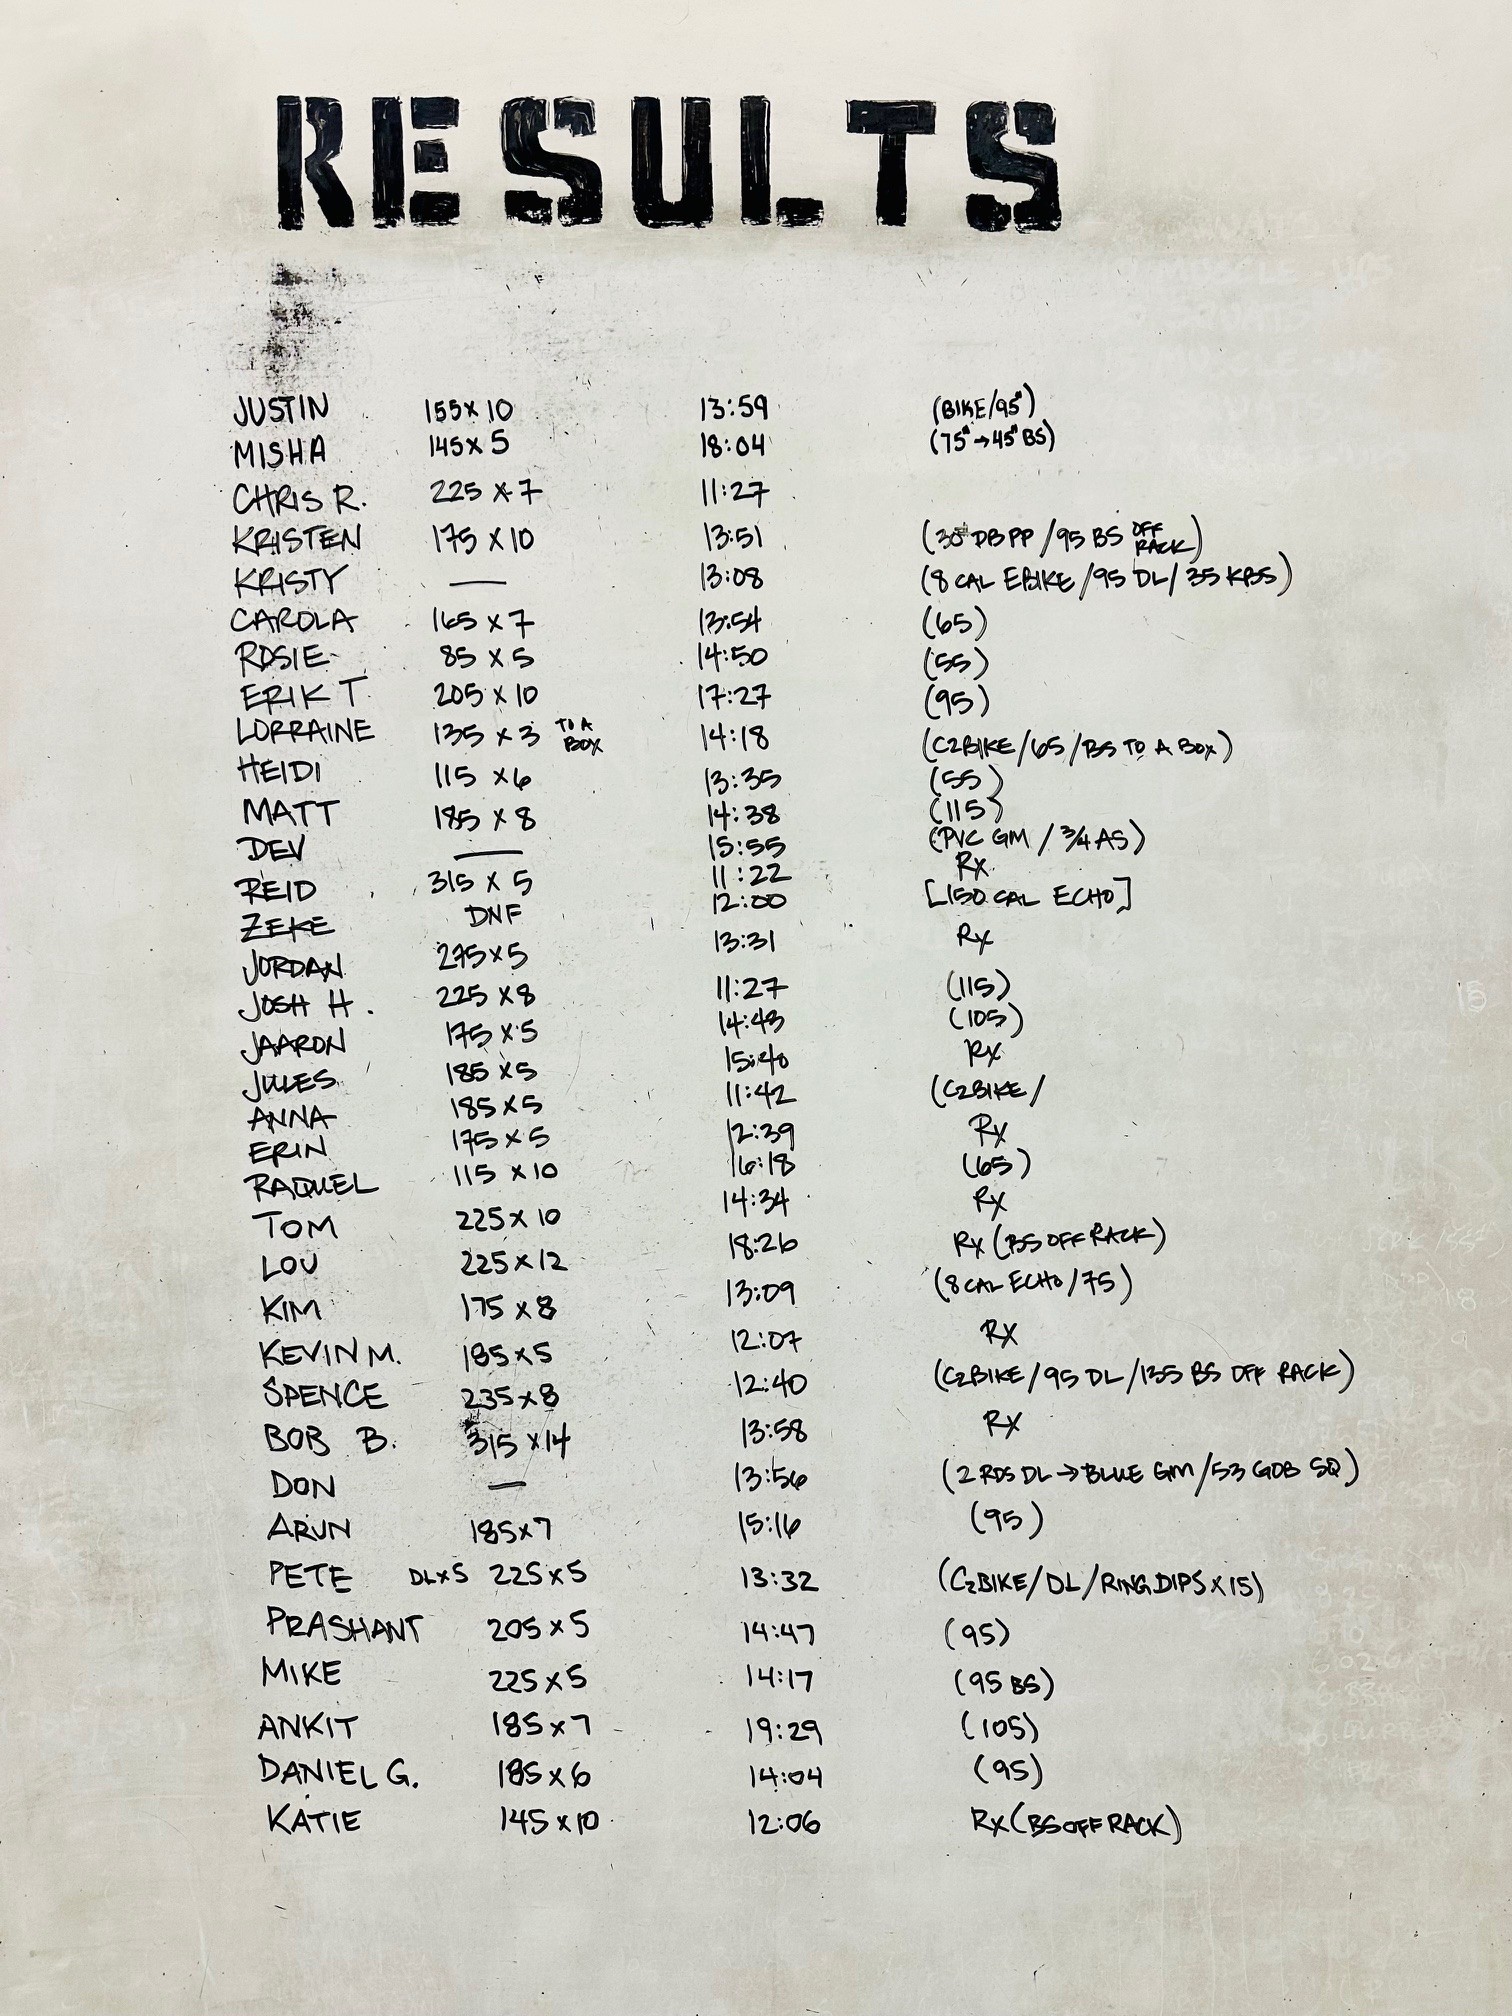 RESULTS
JUSTIN 155 x 10 13:59 (BIKE/95#)
MISHA 145 x 5 18:04 (75# → 45# BS)
CHRIS R. 225 x 7 11:27
KRISTEN 175 x 10 13:51 (30# DB PP / 95 BS OFF RACK)
KRISTY — 13:08 (8 CAL EBIKE / 95 DL / 35 KBS)
CAROLA 165 x 7 13:54 (65)
ROSIE 85 x 5 14:50 (55)
ERIK T 205 x 10 17:27 (95)
LORRAINE 135 x 3 TO A BOX 14:18 (C2BIKE / 65 / BS TO A BOX)
HEIDI 115 x 6 13:35 (55)
MATT 185 x 8 14:38 (115)
DEV — 15:55 (PVC GM / 3/4 AS)
REID 315 x 5 11:22 Rx
ZEKE DNF 12:00 [150 CAL ECHO]
JORDAN 275 x 5 13:31 Rx
JOSH H. 225 x 8 11:27 (115)
JAARON 175 x 5 14:43 (105)
JULES 185 x 5 15:40 Rx
ANNA 185 x 5 11:42 (C2BIKE /
ERIN 175 x 5 12:39 Rx
RAQUEL 115 x 10 16:18 (65)
TOM 225 x 10 14:34 Rx
LOU 225 x 12 18:26 Rx (BS OFF RACK)
KIM 175 x 8 13:09 (8 CAL ECHO / 75)
KEVIN M. 185 x 5 12:07 Rx
SPENCE 235 x 8 12:40 (C2BIKE / 95 DL / 135 BS OFF RACK)
BOB B. 315 x 14 13:58 Rx
DON — 13:56 (2 RDS DL → BLUE GM / 53 GOB SQ)
ARUN 185 x 7 15:16 (95)
PETE DL x 5 225 x 5 13:32 (C2BIKE / DL / RING DIPS x 15)
PRASHANT 205 x 5 14:47 (95)
MIKE 225 x 5 14:17 (95 BS)
ANKIT 185 x 7 19:29 (105)
DANIEL G. 185 x 6 14:04 (95)
KATIE 145 x 10 12:06 Rx (BS OFF RACK)